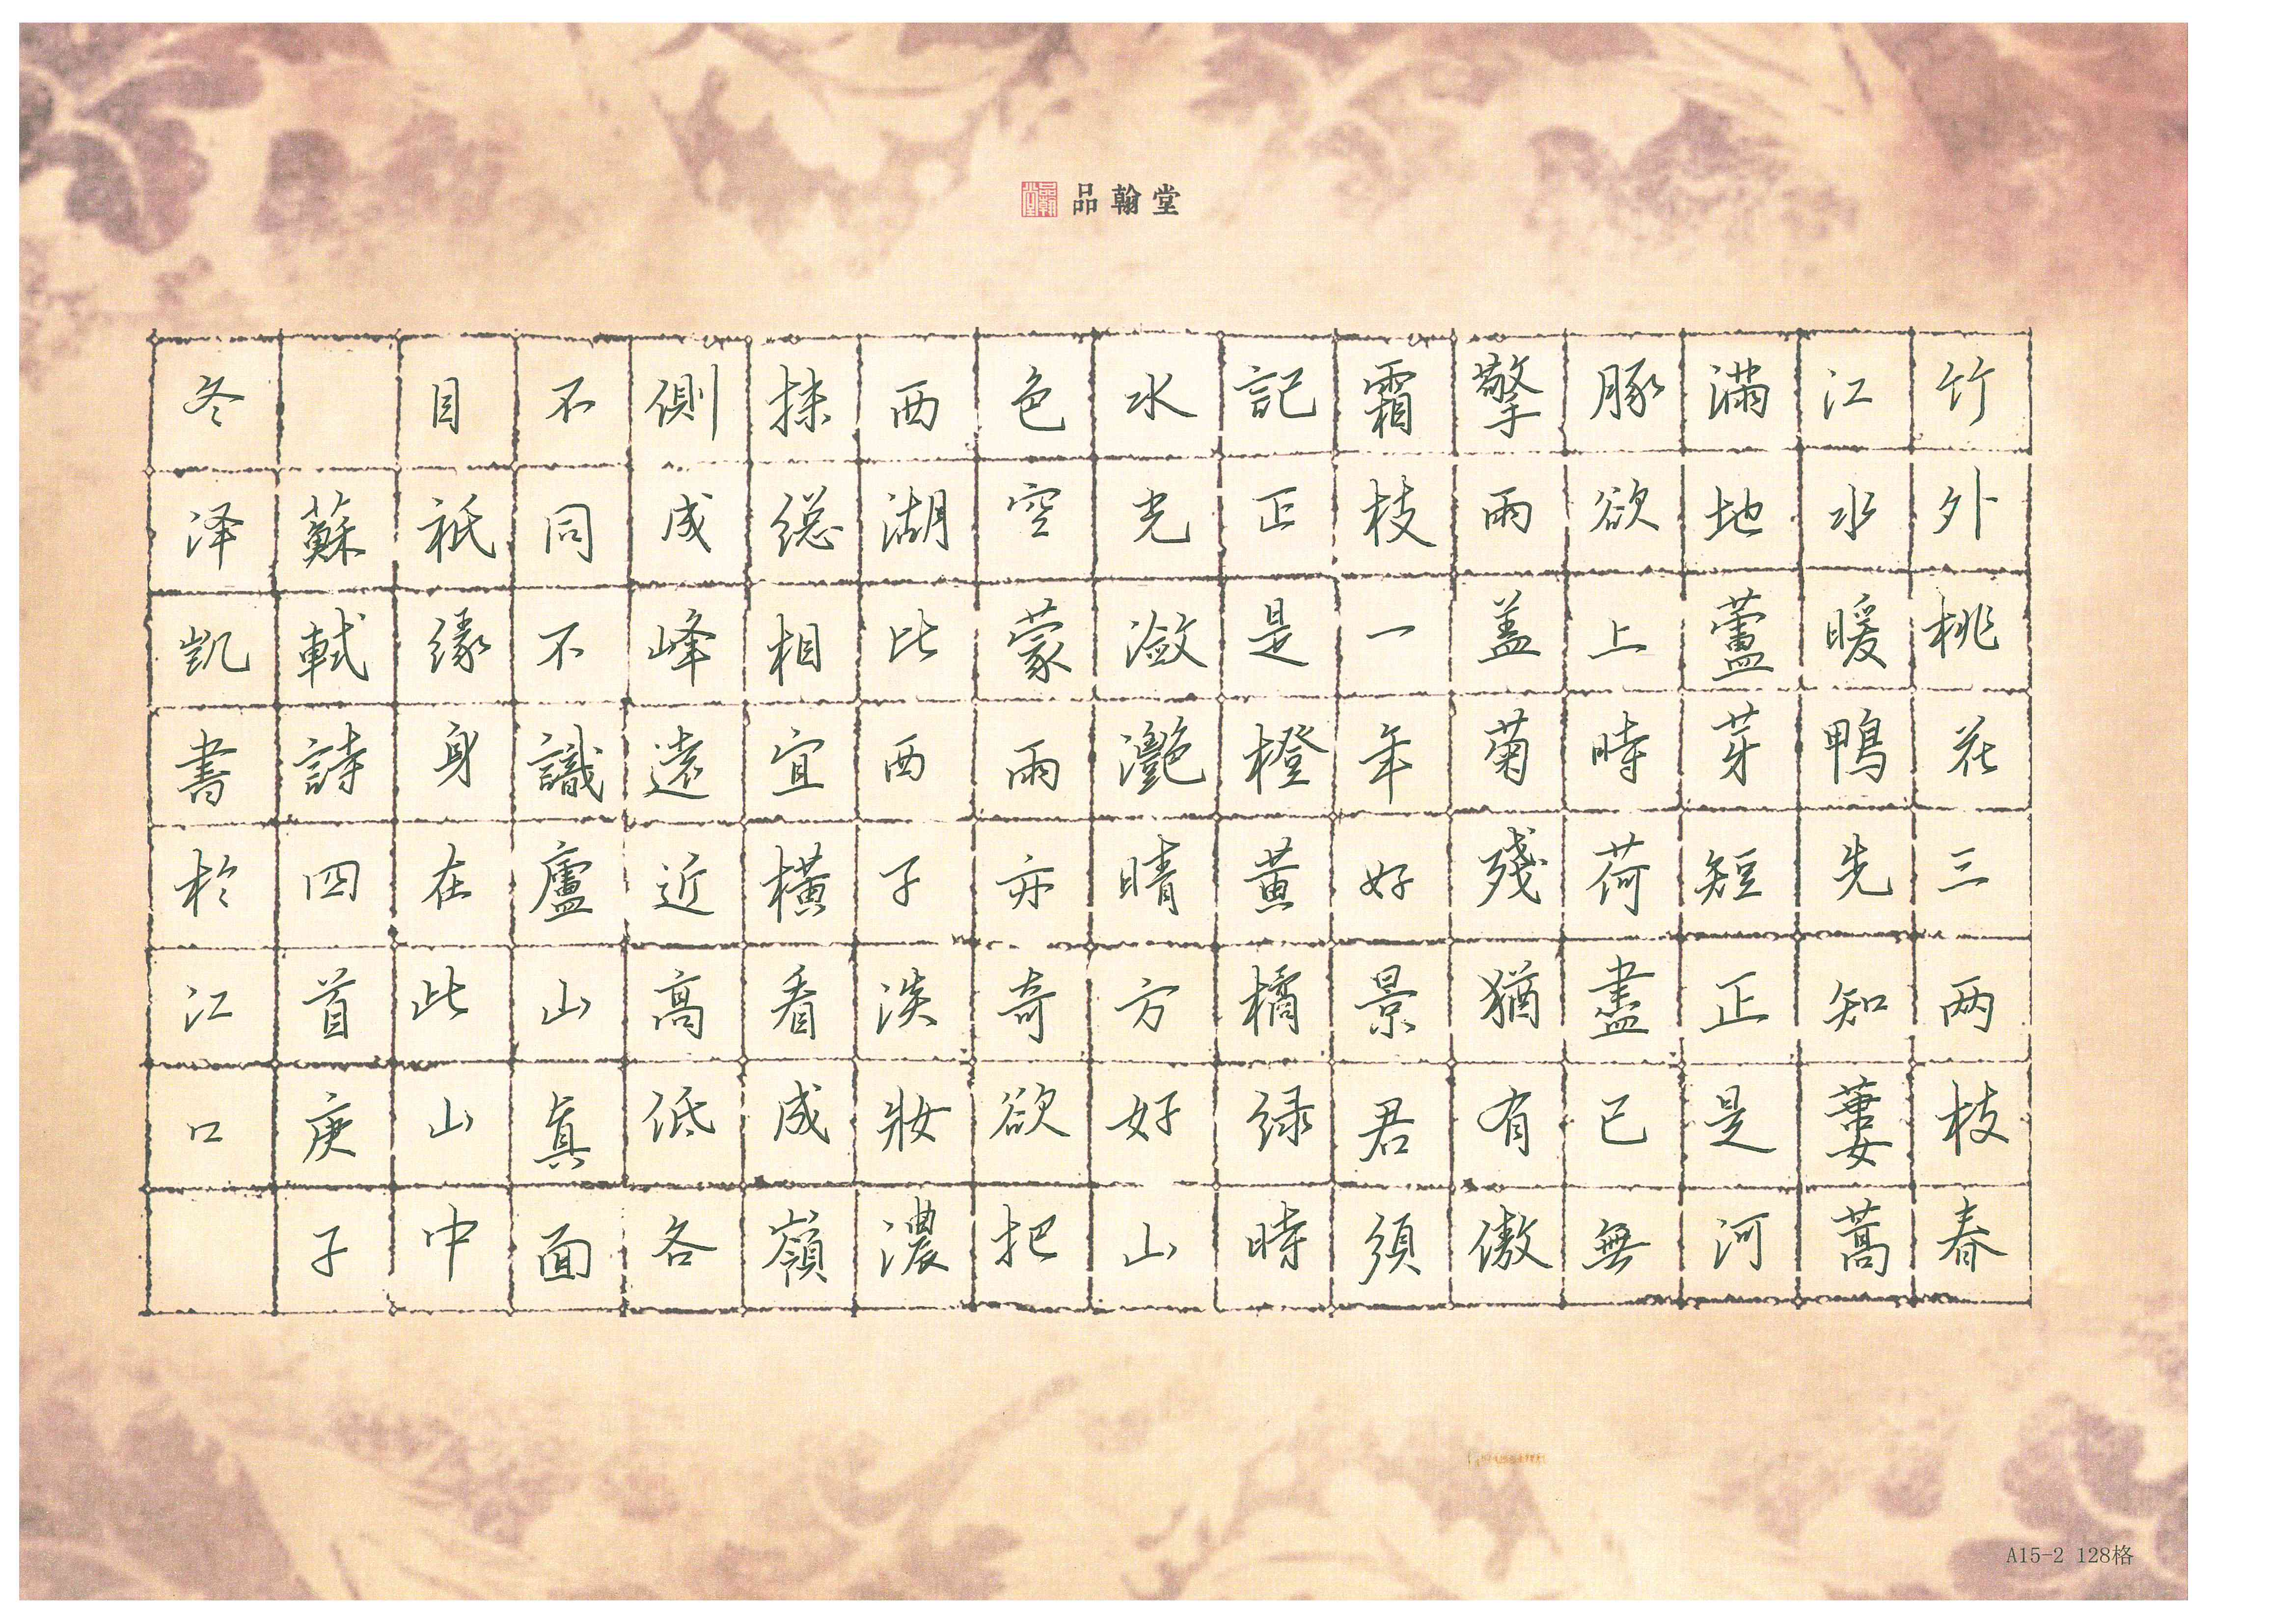 品翰堂
竹外桃花三两枝春
江水暖鴨先知蔞蒿
滿地蘆芽短正是河
豚欲上時荷盡已無
擎雨盖菊殘猶有傲
霜枝一年好景君須
記正是橙黃橘绿時
水光潋灔晴方好山
色空蒙雨亦奇欲把
西湖比西子淡妝濃
抹總相宜橫看成嶺
側成峰遠近高低各
不同不識廬山真面
目衹緣身在此山中
蘇軾詩四首庚子
冬泽凯書於江口
A15-2 128格